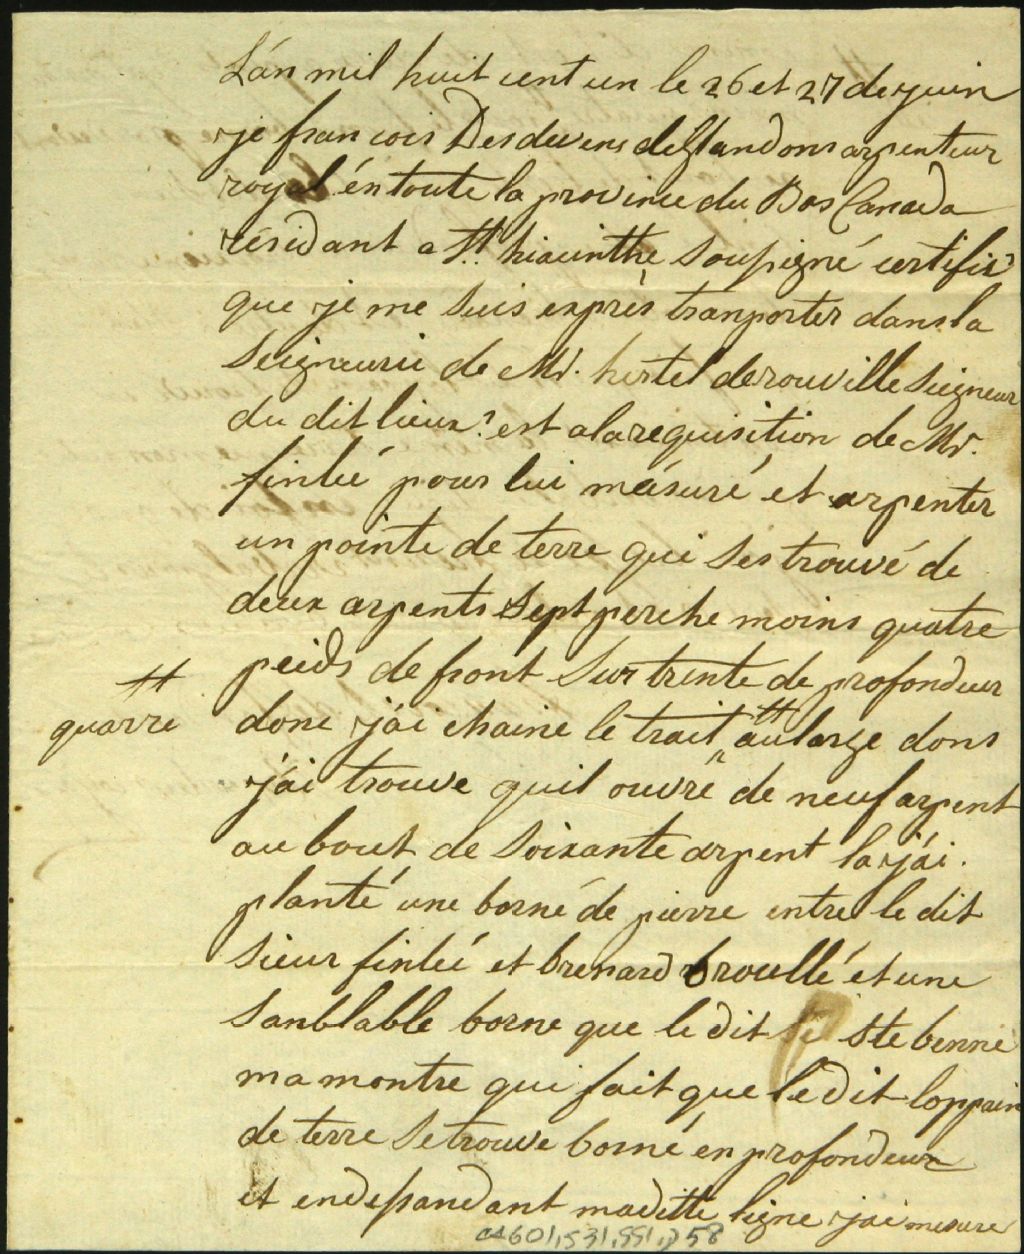 L'an mil huit cent un le 26 et 27 de juin
je francois Desdevens deglandons arpenteur
royal én toute la province du Bas Canada
résidant a St. hiacinthe Soussigné certifis
que je me suis exprès tranporter dans la
Seigneurie de Mr. hertel de rouville Seigneur
du dit lieux est a la requisition de Mr.
finleé pour lui mésuré et arpenter
un pointe de terre qui ses trouvé de
deux arpents sept perche moins quatre
peids de front Sur trente de profondeur
# donc j'ai chaine le trait # au large dons
quarre
j'ai trouve quil ouvre de neuf arpent
au bout de soixante arpent la j'ai
planté une borné de pierre entre le dit
sieur finleé et brenard broullé et une
sanblable borne que le dit Ste benne
ma montre qui fait que le dit loppain
de terre se trouve borné en profondeur
et endessandant maditte ligne j'ai mesure
CA601,S31,SS1,P58